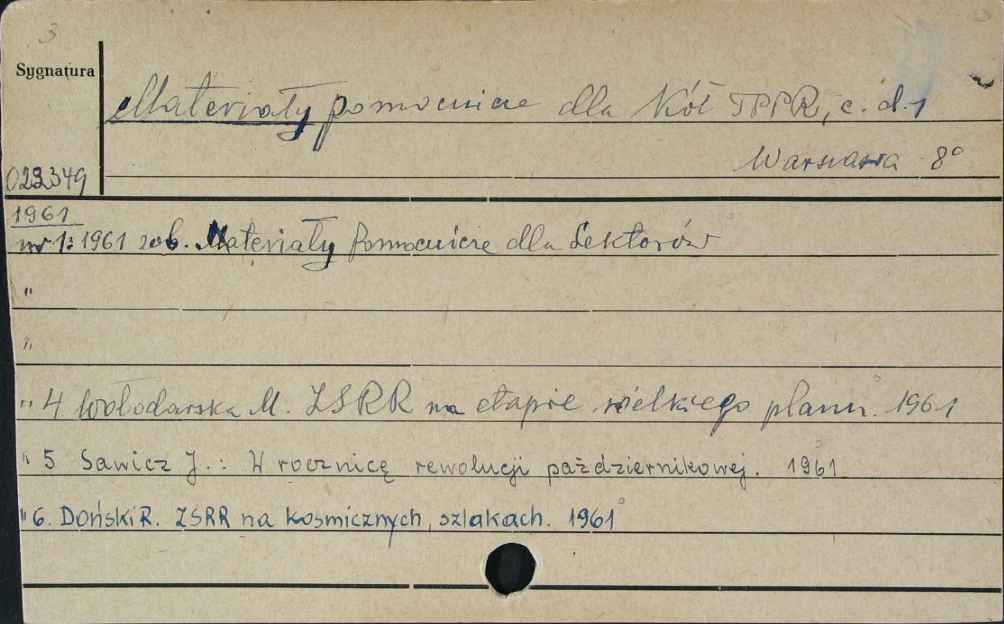 3
Sygnatura
Materiały pomocnicze dla Kół TPPR, c. d. 1
Warszawa 8°
023349
1961
nr 1: 1961 zob. Materiały Pomocnicze dla Lektorów
"
"
" 4 Wołodarska M. ZSRR na etapie wielkiego planu. 1961
" 5 Sawicz J.: W rocznicę rewolucji październikowej. 1961
" 6. Doński R. ZSRR na kosmicznych szlakach. 1961